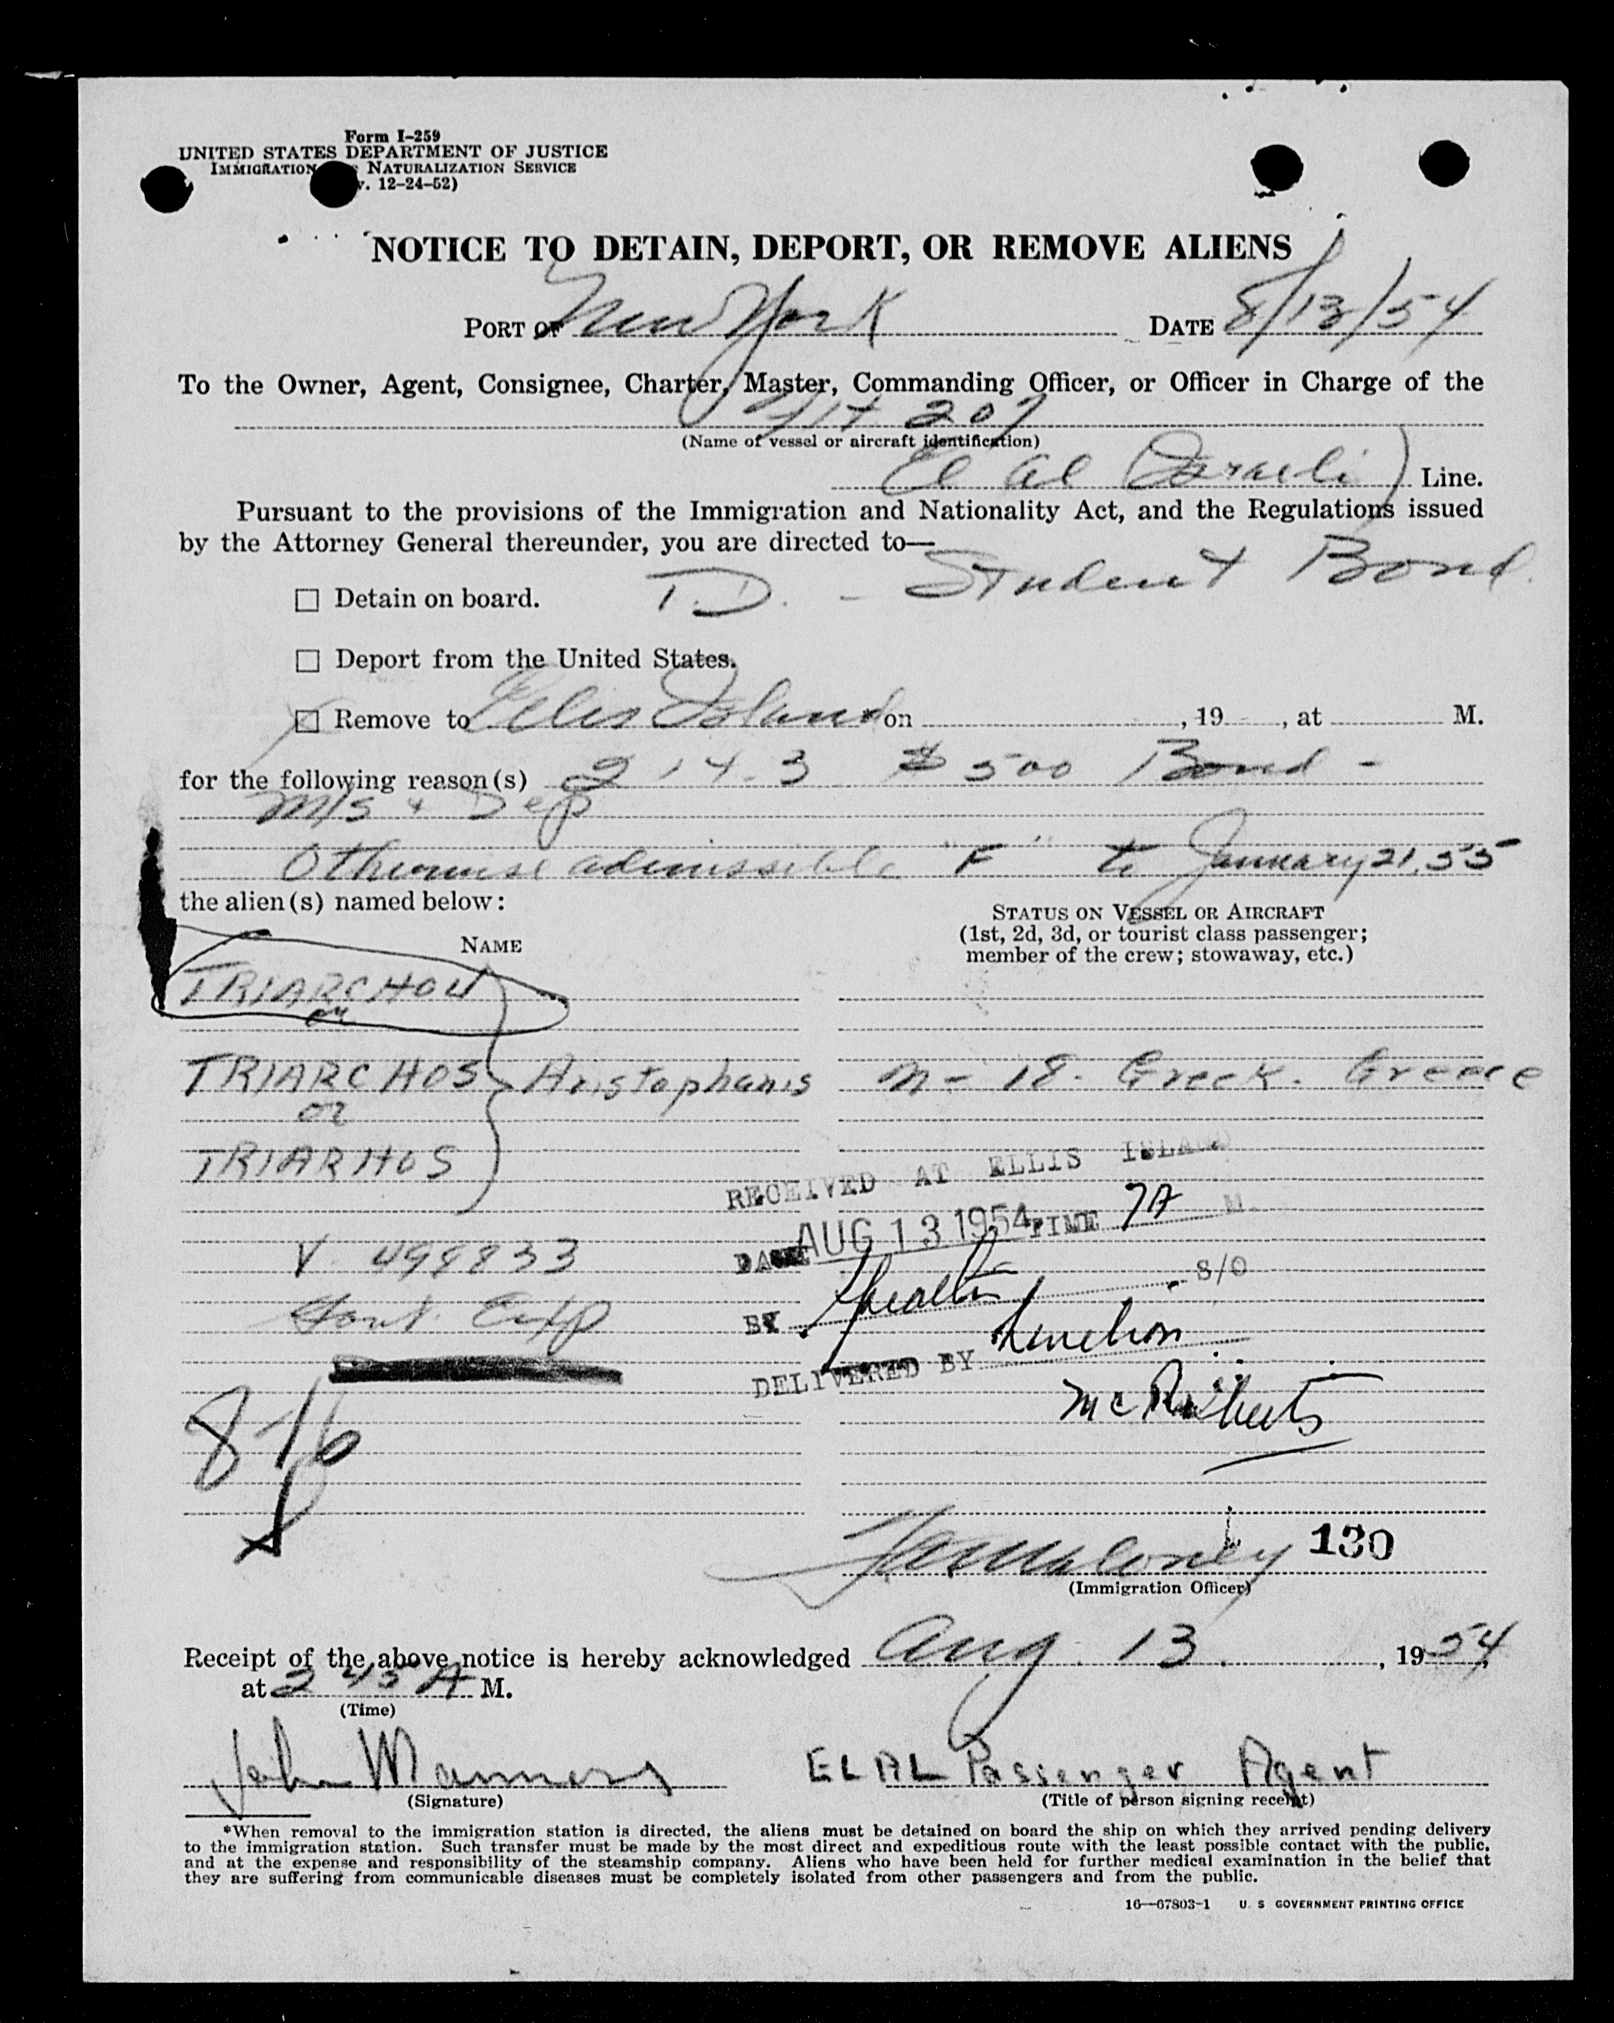 Form I-259
UNITED STATES DEPARTMENT OF JUSTICE
IMMIGRATION NATURALIZATION SERVICE
. 12-24-52)
NOTICE TO DETAIN, DEPORT, OR REMOVE ALIENS
PORT OF New York DATE 8/13/54
To the Owner, Agent, Consignee, Charter, Master, Commanding Officer, or Officer in Charge of the
Flt 207
(Name of vessel or aircraft identification)
El Al (Israeli) Line.
Pursuant to the provisions of the Immigration and Nationality Act, and the Regulations issued
by the Attorney General thereunder, you are directed to—
☐ Detain on board. T.D. - Student Bond.
☐ Deport from the United States.
☐ Remove to Ellis Island on , 19 , at M.
for the following reason(s) 214.3 $500 Bond -
M/S & Dep
Otherwise admissible "F" to January 21, 55
the alien(s) named below:
NAME
STATUS ON VESSEL OR AIRCRAFT
(1st, 2d, 3d, or tourist class passenger;
member of the crew; stowaway, etc.)
TRIARCHOU
or
TRIARCHOS Aristophanis M - 18 - Greek. Greece
or
TRIARHOS
RECEIVED AT ELLIS ISLAND
DATE AUG 13 1954 TIME 7A M.
V. 499833
BY S/O
DELIVERED BY
8-16
130
(Immigration Officer)
Receipt of the above notice is hereby acknowledged Aug. 13, 1954,
at 2 45 A M.
(Time)
John Manners EL AL Passenger Agent
(Signature) (Title of person signing receipt)
*When removal to the immigration station is directed, the aliens must be detained on board the ship on which they arrived pending delivery
to the immigration station. Such transfer must be made by the most direct and expeditious route with the least possible contact with the public,
and at the expense and responsibility of the steamship company. Aliens who have been held for further medical examination in the belief that
they are suffering from communicable diseases must be completely isolated from other passengers and from the public.
16—67803-1 U. S. GOVERNMENT PRINTING OFFICE